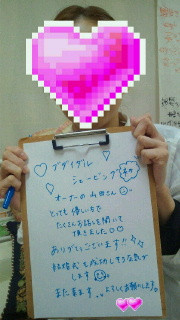 ブライダル
シェービング
オーナーの山田さん
とっても優しい方で
たくさんお話しを聞いて
頂きました♡
ありがとうございます!!
結婚式も成功しそうな気が
します
また来ます。よろしくお願いします。